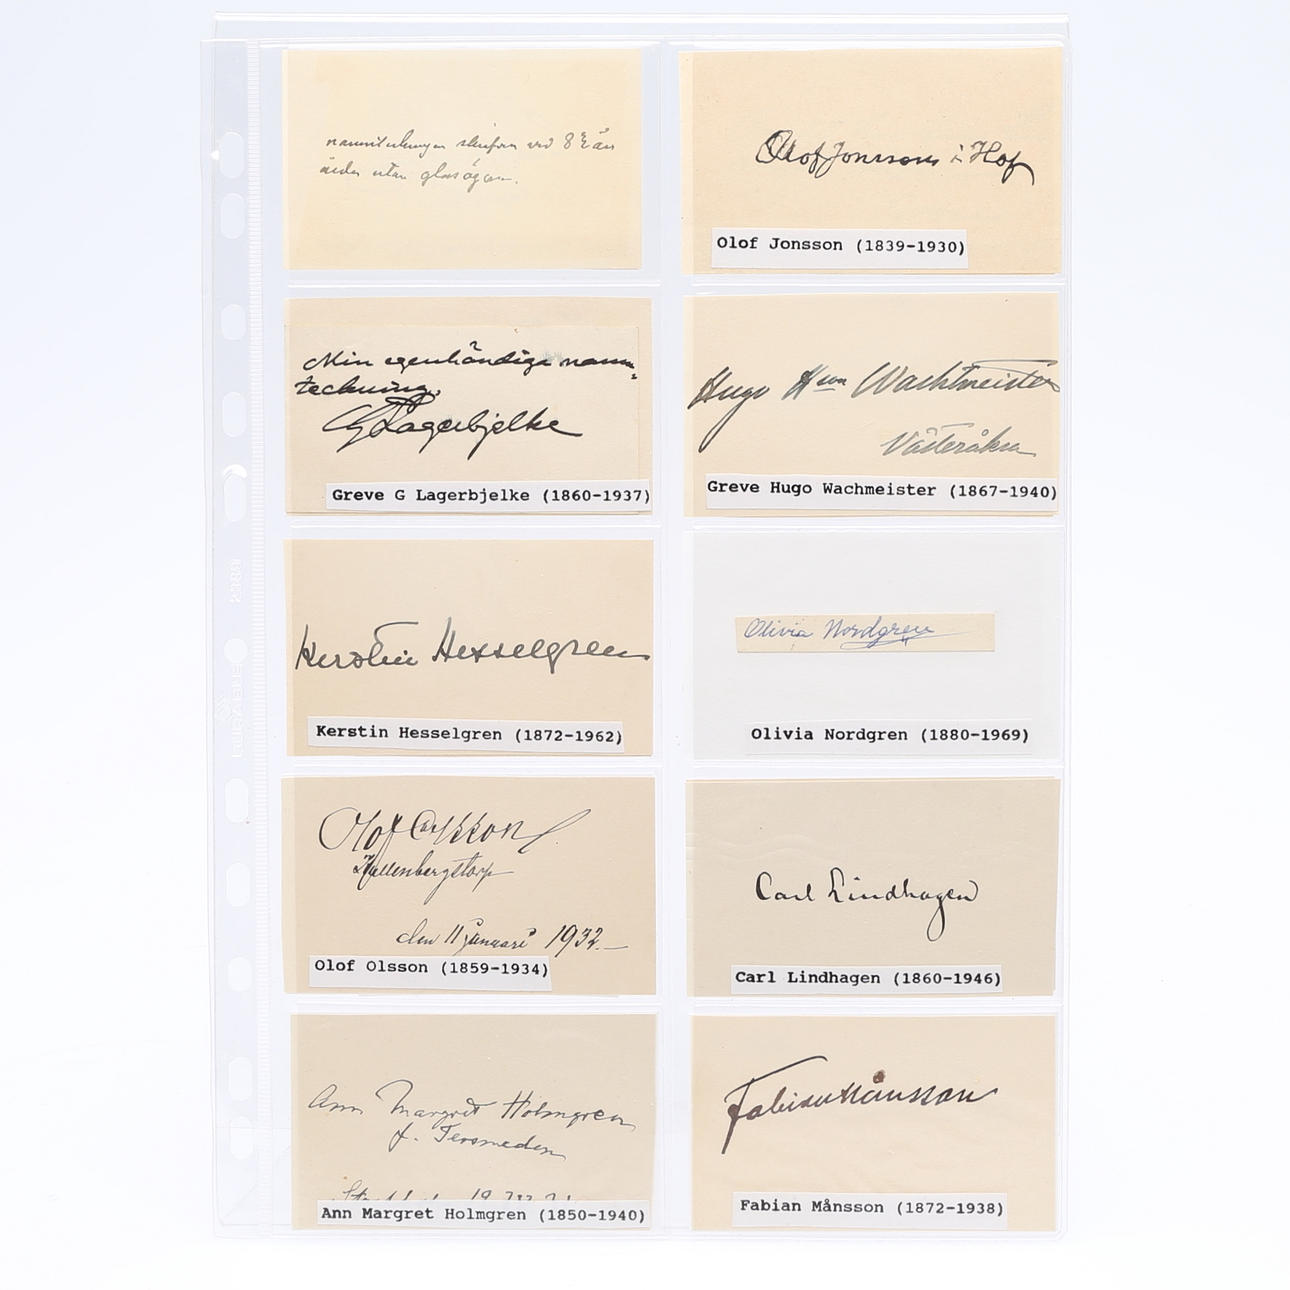 namnteckningen skrifven vid 8½ års
ålder utan glasögon.
Olof Jonsson i Hof
Olof Jonsson (1839-1930)
Min egenhändiga namn-
teckning.
G Lagerbjelke
Greve G Lagerbjelke (1860-1937)
Hugo Hson Wachtmeister
Västeråker
Greve Hugo Wachmeister (1867-1940)
Kerstin Hesselgren
Kerstin Hesselgren (1872-1962)
Olivia Nordgren
Olivia Nordgren (1880-1969)
Olof Olsson
Kullenbergstorp
den 11 januari 1932.
Olof Olsson (1859-1934)
Carl Lindhagen
Carl Lindhagen (1860-1946)
Ann Margret Holmgren
f. Tersmeden
Ann Margret Holmgren (1850-1940)
Fabian Månsson
Fabian Månsson (1872-1938)